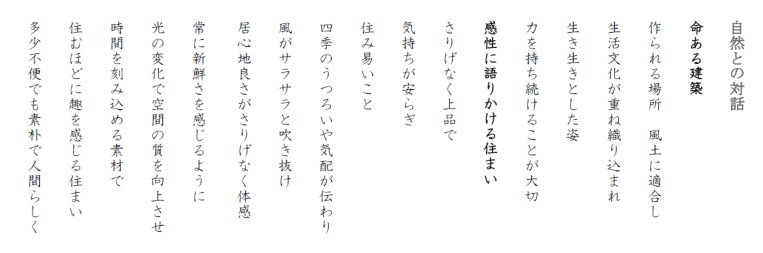 自然との対話
命ある建築
作られる場所　風土に適合し
生活文化が重ね織り込まれ
生き生きとした姿
力を持ち続けることが大切
感性に語りかける住まい
さりげなく上品で
気持ちが安らぎ
住み易いこと
四季のうつろいや気配が伝わり
風がサラサラと吹き抜け
居心地良さがさりげなく体感
常に新鮮さを感じるように
光の変化で空間の質を向上させ
時間を刻み込める素材で
住むほどに趣を感じる住まい
多少不便でも素朴で人間らしく